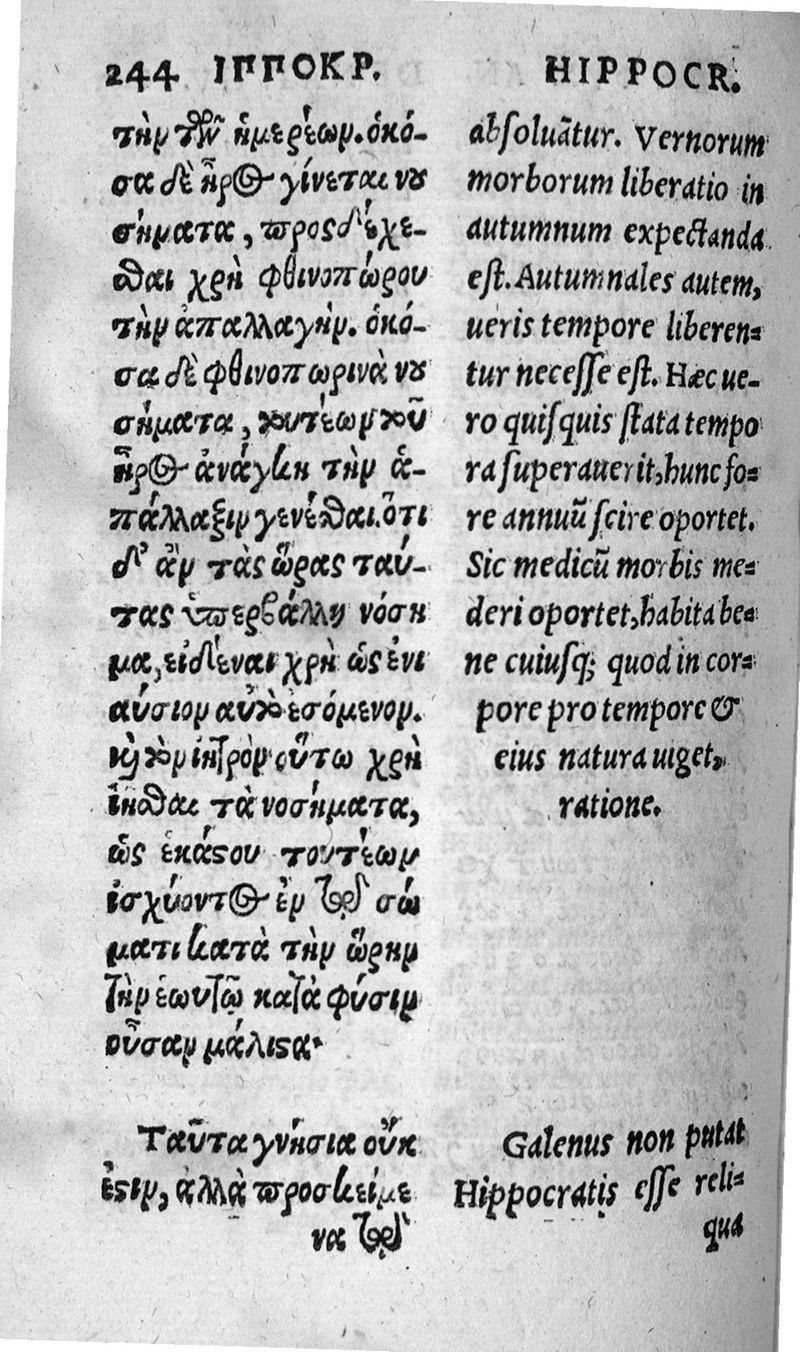 244 ΙΠΠΟΚΡ.
τὴν τῶν ἡμερέων. ὁκό-
σα δὲ ἦρος γίνεται νου
σήματα, προσδέχε-
σθαι χρὴ φθινοπώρου
τὴν ἀπαλλαγήν. ὁκό-
σα δὲ φθινοπωρινὰ νου
σήματα, τουτέων τοῦ
ἦρος ἀνάγκη τὴν ἀ-
πάλλαξιν γενέσθαι. ὅτι
δ' ἂν τὰς ὥρας ταύ-
τας ὑπερβάλλῃ νόση
μα, εἰδέναι χρὴ ὡς ἐνι
αύσιον αὐτὸ ἐσόμενον.
καὶ τὸν ἰητρὸν οὕτω χρὴ
ἰῆσθαι τὰ νοσήματα,
ὡς ἑκάστου τουτέων
ἰσχύοντος ἐν τῷ σώ
ματι κατὰ τὴν ὥρην
τὴν ἑωυτῷ κατὰ φύσιν
οὖσαν μάλιστα.
Ταῦτα γνήσια οὔκ
ἐστιν, ἀλλὰ προσκείμε
να τῷ
HIPPOCR.
absoluãtur. Vernorum
morborum liberatio in
autumnum expectanda
est. Autumnales autem,
ueris tempore liberen=
tur necesse est. Hæc ue-
ro quisquis stata tempo
ra superauerit, hunc fo=
re annuũ scire oportet.
Sic medicũ morbis me=
deri oportet, habita be=
ne cuiusq; quod in cor=
pore pro tempore &
eius natura uiget,
ratione.
Galenus non putat
Hippocratis esse reli=
qua